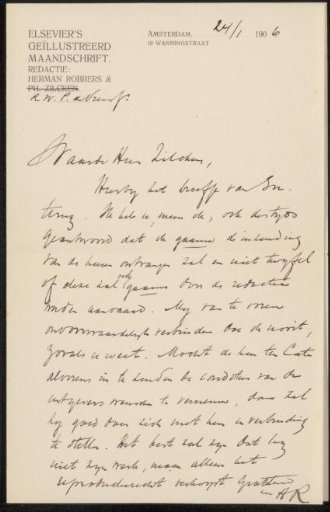 ELSEVIER'S
GEÏLLUSTREERD
MAANDSCHRIFT.
REDACTIE:
HERMAN ROBBERS &
PH. ZILCKEN.
R. W. P. de Vries Jr.
AMSTERDAM. 24/1 1906
19 WANNINGSTRAAT
Waarde Heer Zilcken,
Hierbij het briefje van
terug. Ik heb u, meen ik, ook destijds
geantwoord dat ik gaarne de inzending
van de heeren ontvangen zal en niet twijfel
of deze zal ook gaarne door de redactie
worden aanvaard. Mij van te voren
onvoorwaardelijk verbinden doe ik nooit,
zooals u weet. Mocht de heer ten Cate
alvorens in te zenden de condities van de
uitgevers wenschen te vernemen, dan zal
hij goed doen zich met hen in verbinding
te stellen. Het best zal zijn dat hij
niet zijn werk, maar alleen het
reproductierecht verkoopt
HR